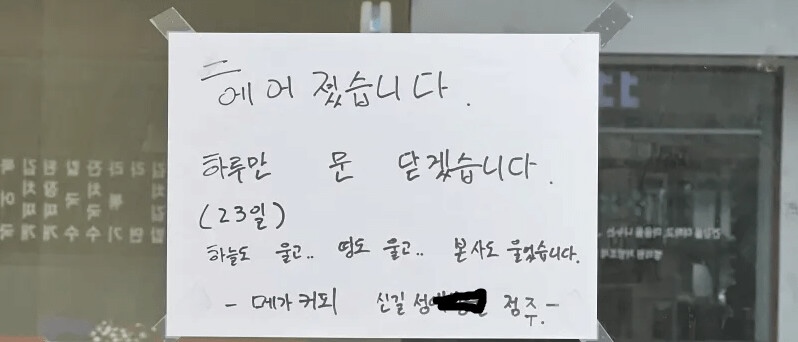 헤어 졌습니다.
하루만 문 닫겠습니다.
(23일)
하늘도 울고.. 땅도 울고.. 본사도 울었습니다.
- 메가커피 신길 성 점주. -